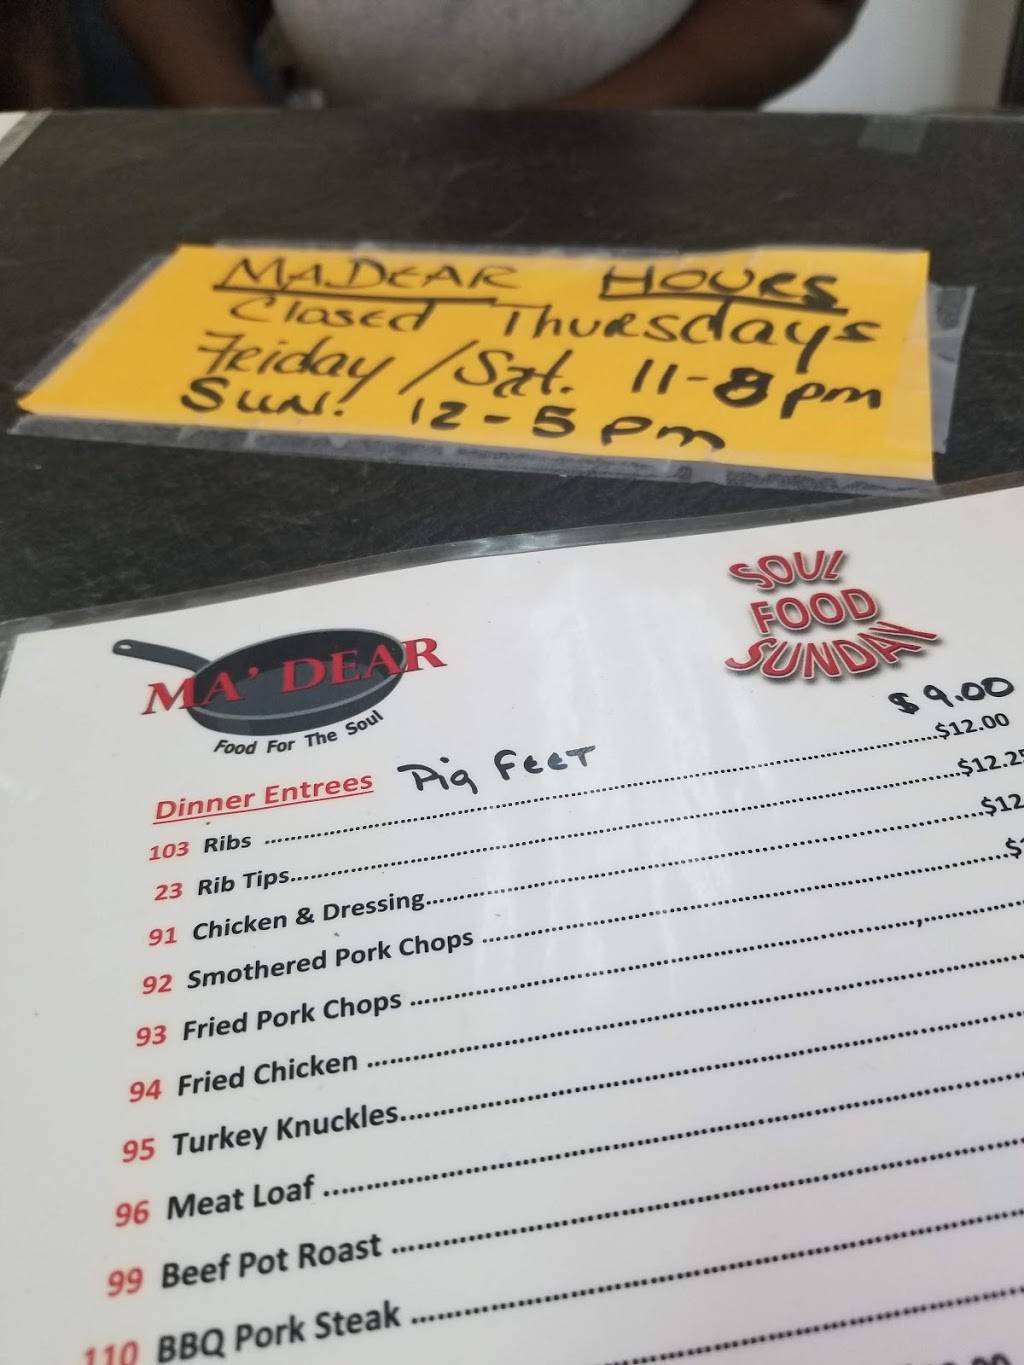 MA.DEAR HOURS
Closed Thursdays
Friday/Sat. 11-8pm
Sun. 12-5pm
SOUL
FOOD
SUNDAY
MA' DEAR
Food For The Soul
Dinner Entrees Pig Feet $9.00
103 Ribs ........ $12.00
23 Rib Tips........ $12.25
91 Chicken & Dressing........ $12
92 Smothered Pork Chops ........ $
93 Fried Pork Chops ........
94 Fried Chicken ........
95 Turkey Knuckles........
96 Meat Loaf ........
99 Beef Pot Roast ........
110 BBQ Pork Steak ........